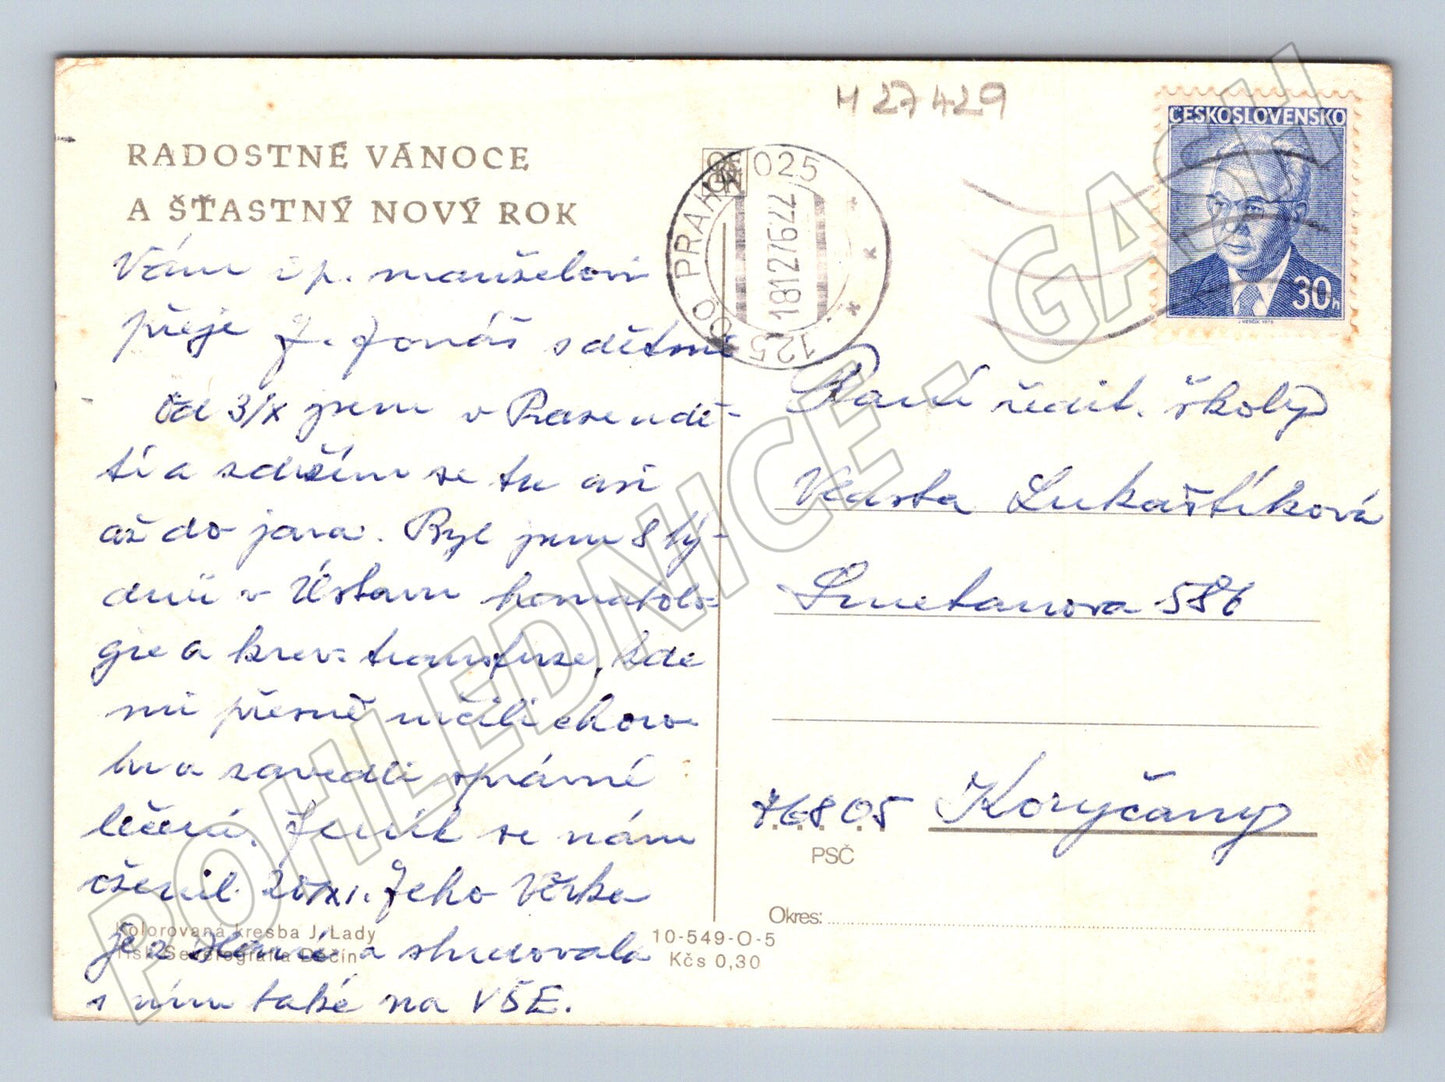 H 27429
ČESKOSLOVENSKO
30h
125 00 PRAHA 025
18.12.76.22
RADOSTNÉ VÁNOCE
A ŠŤASTNÝ NOVÝ ROK
Vám i p. manželovi
přeje J. Jonáš s dětmi
Od 3/X jsem v
a zdržím se tu asi
až do jara. Byl jsem 8 tý-
dnů v Ústavu hematolo-
gie a krev. transfuze, kde
mi přesně určili choro-
bu a zavedli správné
léčení. Jeník se nám
oženil 20/XI. Jeho Věrka
je z Hané a studovala
s ním také na VŠE.
Kolorovaná kresba J. Lady
Tisk Severografia Děčín
10-549-O-5
Kčs 0,30
Paní ředit. školy
Vlasta Lukaštíková
Smetanova 586
76805 Koryčany
PSČ
Okres:
POHLEDNICE - GASH